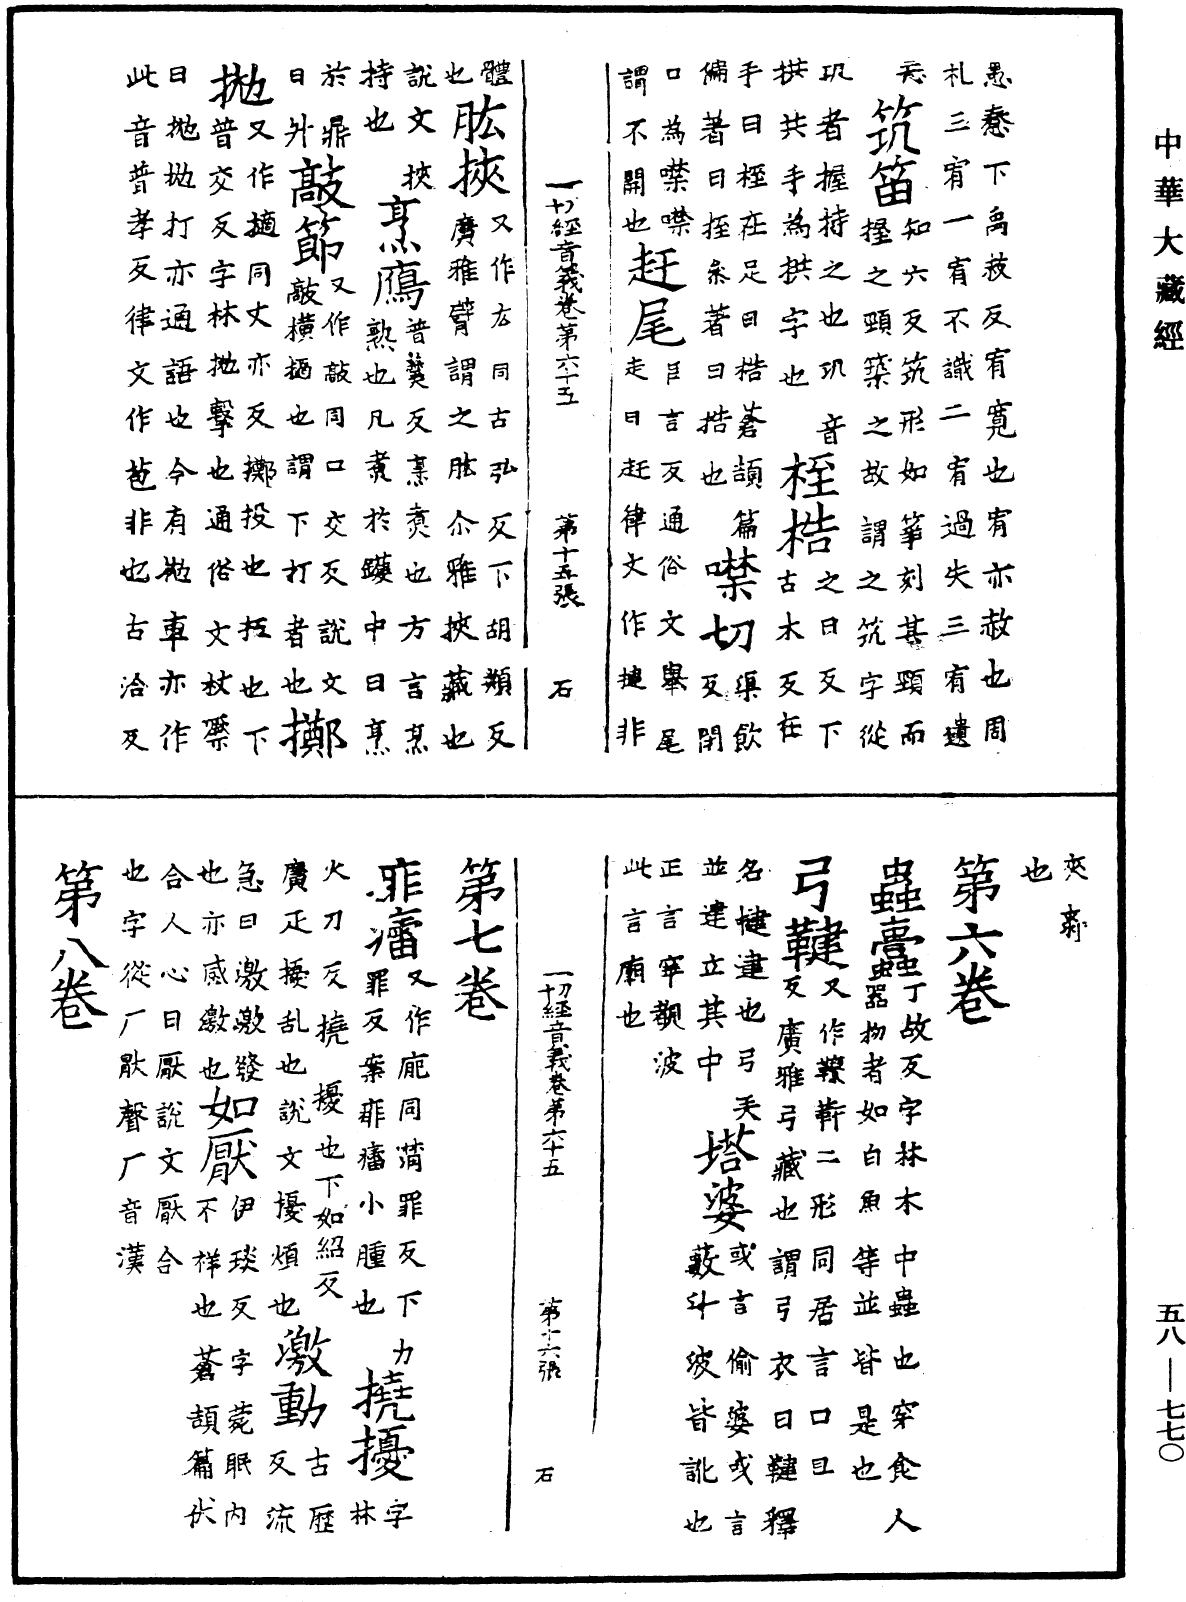 中華大藏經
愚憃下禹救反宥寬也宥亦赦也周
札三宥一宥不識二宥過失三宥遺
忘筑笛知六反筑形如筝刻其頸而
握之頸築之故謂之筑字從
巩者握持之也巩音之曰反下
拱共手為拱字也桎梏古木反在
手曰桎在足曰梏蒼頡篇
偏著曰桎參著曰梏也噤切渠飲反閉
口為噤噤巨言反通俗文舉尾
謂不開也赶尾走曰赶律文作揵非
一切經音義卷第六十五 第十五張 石
體也肱挾又作厷同古弘反下胡頰反
廣雅臂謂之肱尒雅挾藏也
說文挾烹鴈普羹反烹煑也方言烹
持也熟也凡煑於鑊中曰烹
於鼎敲節又作敲同口交反說文
日外敲橫檛也謂下打者也擲
拋又作擿同丈亦反擲投也抂也下
普交反字林拋擊也通俗文杖檃
曰拋拋打亦通語也今有拋車亦作
此音普孝反律文作苞非也古洽反
夾㓨
也
第六卷
蟲蠹丁故反字林木中蟲也穿食人
器物者如白魚等並皆是也
弓鞬又作鞬靳二形同居言口旦
反廣雅弓藏也謂弓衣曰鞬釋
名揵建也弓矢塔婆或言偷婆或言
並建立其中藪斗波皆訛也
正言窣覩波
此言廟也
一切經音義卷第六十五 第十六張 石
第七卷
痱癗又作㾦同蒲罪反下力
罪反案痱癗小腫也撓擾字林
火刀反撓擾也下如紹反
廣正擾乱也說文擾煩也激動古歷
反流
急曰激激發如厭伊琰反字苑眠內
也亦感激也不祥也蒼頡篇伏
合人心曰厭說文厭合
也字從厂猒聲厂音漢
第八卷
五八—七七〇